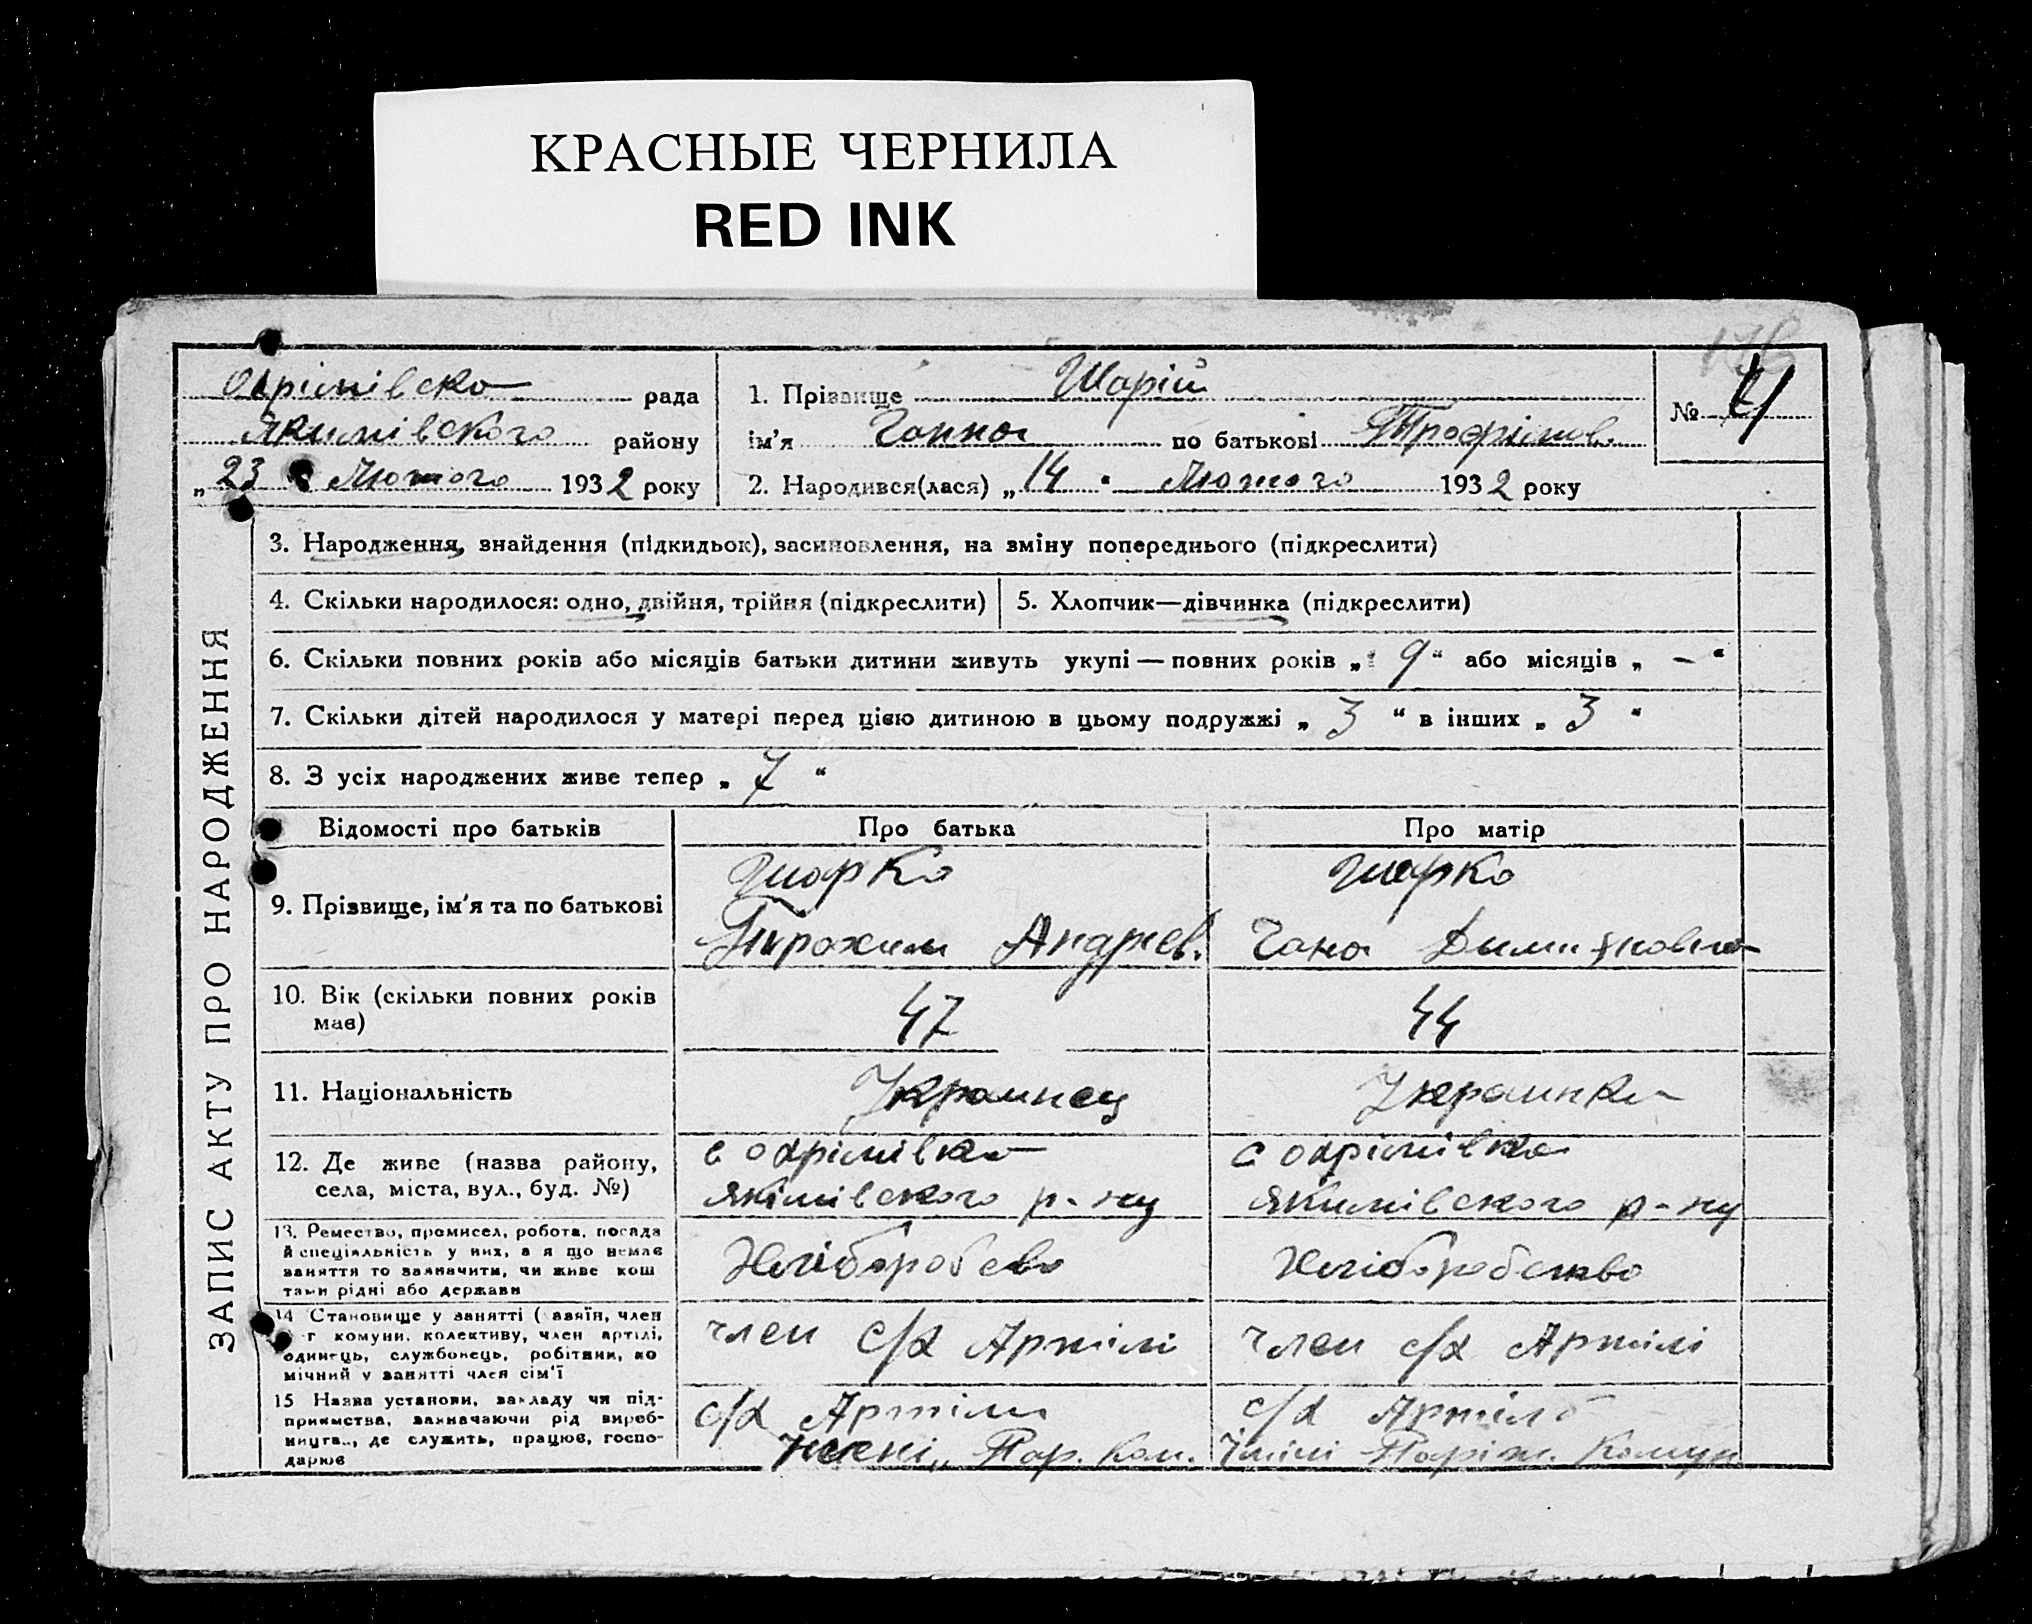 КРАСНЫЕ ЧЕРНИЛА
RED INK
Охрімівска рада
Якимівского району
„23 Лютого 1932 року
1. Прізвище Шарій
ім'я Ганна по батькові Трофімов.
2. Народився(лася) „14 " Лютого 1932 року
№ 4
ЗАПИС АКТУ ПРО НАРОДЖЕННЯ
3. Народження, знайдення (підкидьок), засиновлення, на зміну попереднього (підкреслити)
4. Скільки народилося: одно, двійня, трійня (підкреслити)
5. Хлопчик—дівчинка (підкреслити)
6. Скільки повних років або місяців батьки дитини живуть укупі — повних років „ 9 “ або місяців „ – “
7. Скільки дітей народилося у матері перед цією дитиною в цьому подружжі „ 3 “ в інших „ 3 “
8. З усіх народжених живе тепер „ 7 “
Відомості про батьків
Про батька
Про матір
9. Прізвище, ім'я та по батькові
Шарко
Андрієв.
Шарко
Гана
10. Вік (скільки повних років
має)
47
44
11. Національність
Украинец
Украинка
12. Де живе (назва району,
села, міста, вул., буд. №)
с Охрімівка
Якімівского р-ну
с Охрімівка
Якимівского р-ну
13. Ремество, промисел, робота, посада
й спеціяльність у них, а я що немає
заняття то зазначити, чи живе кош
тами рідні або держави
Хліборобсво
Хліборобство
14 Становище у занятті ( авяїн, член
г комуни, колективу, член артілі,
одинець, службовець, робітник, по
мічний у занятті член сім'ї
член с/г Артілі
член с/г Артілі
15 Назва установи, закладу чи під-
приємства, зазначаючи рід вироб-
ницта.., де служить, працює, госпо-
дарює
с/г Артіли
Імені „ Пар. Ком.
с/г Артіль
Іміні Паріж. Комун